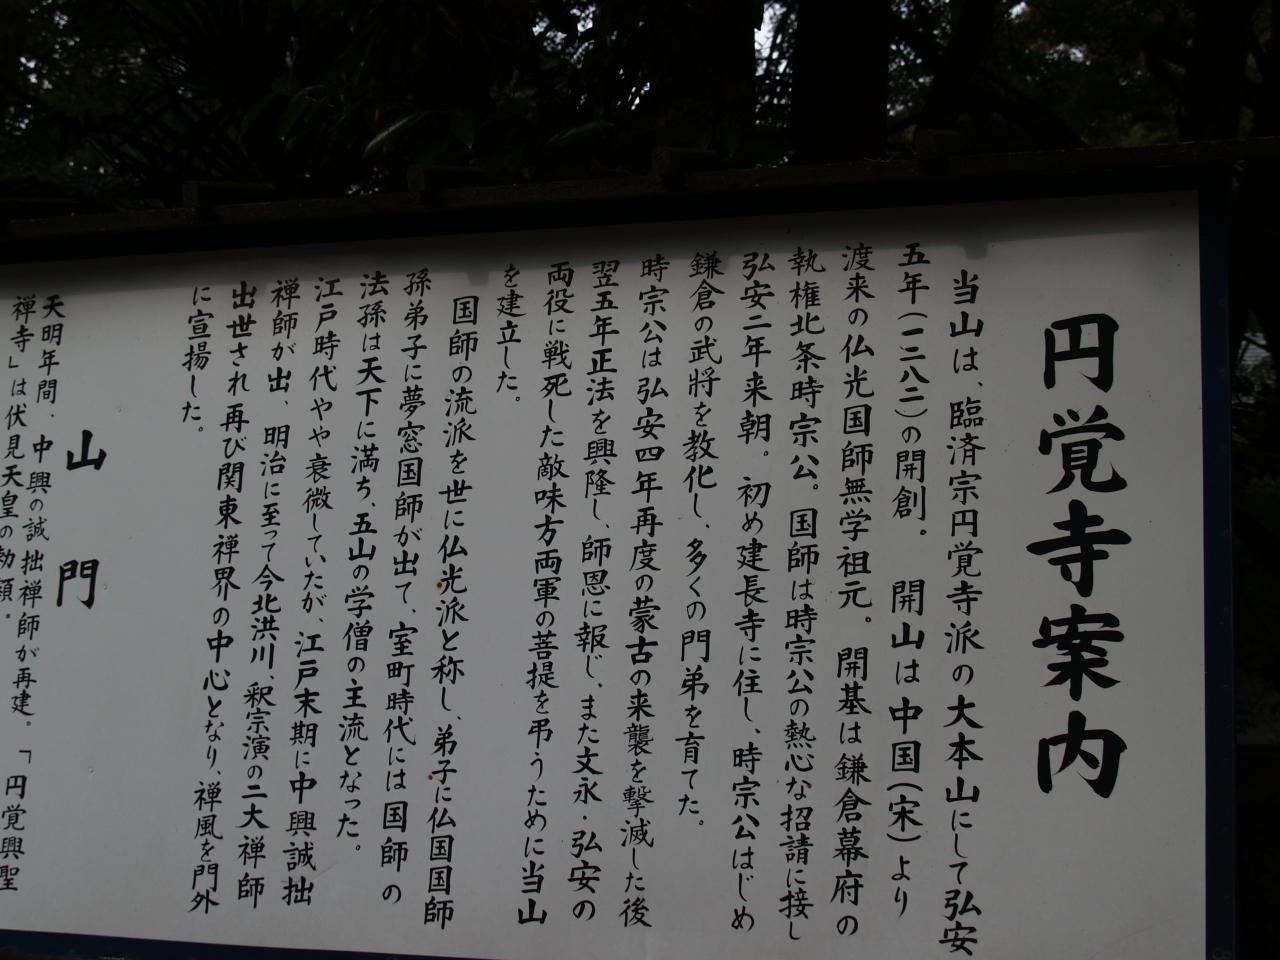 円覚寺案内
当山は、臨済宗円覚寺派の大本山にして弘安
五年(一二八二)の開創。開山は中国(宋)より
渡来の仏光国師無学祖元。開基は鎌倉幕府の
執権北条時宗公。国師は時宗公の熱心な招請に接し
弘安二年来朝。初め建長寺に住し、時宗公はじめ
鎌倉の武将を教化し、多くの門弟を育てた。
時宗公は弘安四年再度の蒙古の来襲を撃滅した後
翌五年正法を興隆し、師恩に報じ、また文永・弘安の
両役に戦死した敵味方両軍の菩提を弔うために当山
を建立した。
国師の流派を世に仏光派と称し、弟子に仏国国師
孫弟子に夢窓国師が出て、室町時代には国師の
法孫は天下に満ち、五山の学僧の主流となった。
江戸時代やや衰微していたが、江戸末期に中興誠拙
禅師が出、明治に至って今北洪川、釈宗演の二大禅師
出世され再び関東禅界の中心となり、禅風を門外
に宣揚した。
山門
天明年間、中興の誠拙禅師が再建。「円覚興聖
禅寺」は伏見天皇の勅額。